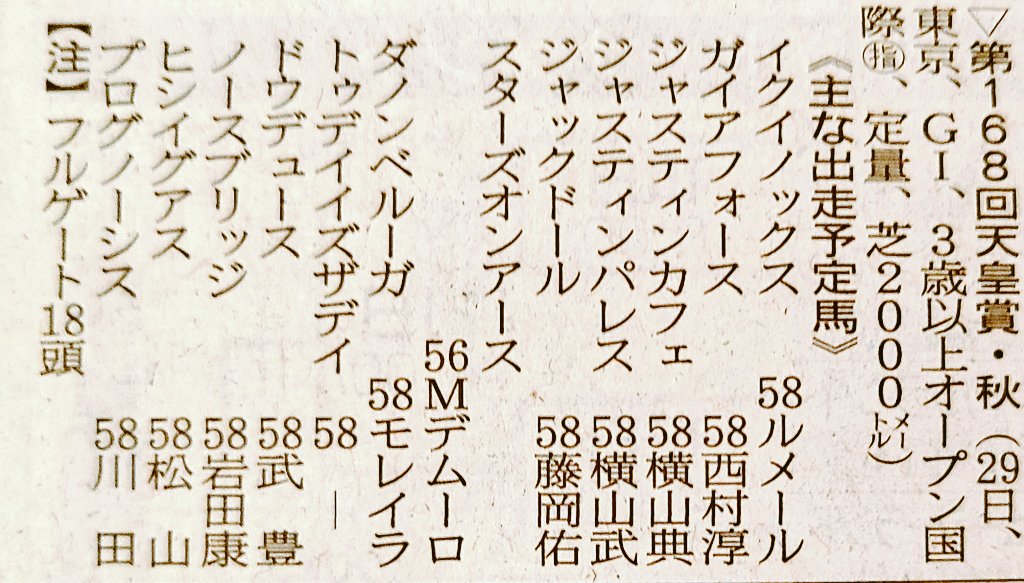 ▽第168回天皇賞・秋（29日、
東京、GⅠ、3歳以上オープン国
際㊟、定量、芝2000メートル）
《主な出走予定馬》
イクイノックス 58ルメール
ガイアフォース 58西村淳
ジャスティンカフェ 58横山典
ジャスティンパレス 58横山武
ジャックドール 58藤岡佑
スターズオンアース
56Mデムーロ
ダノンベルーガ 58モレイラ
トゥデイイズザデイ 58 ―
ドウデュース 58武 豊
ノースブリッジ 58岩田康
ヒシイグアス 58松 山
プログノーシス 58川 田
【注】フルゲート18頭